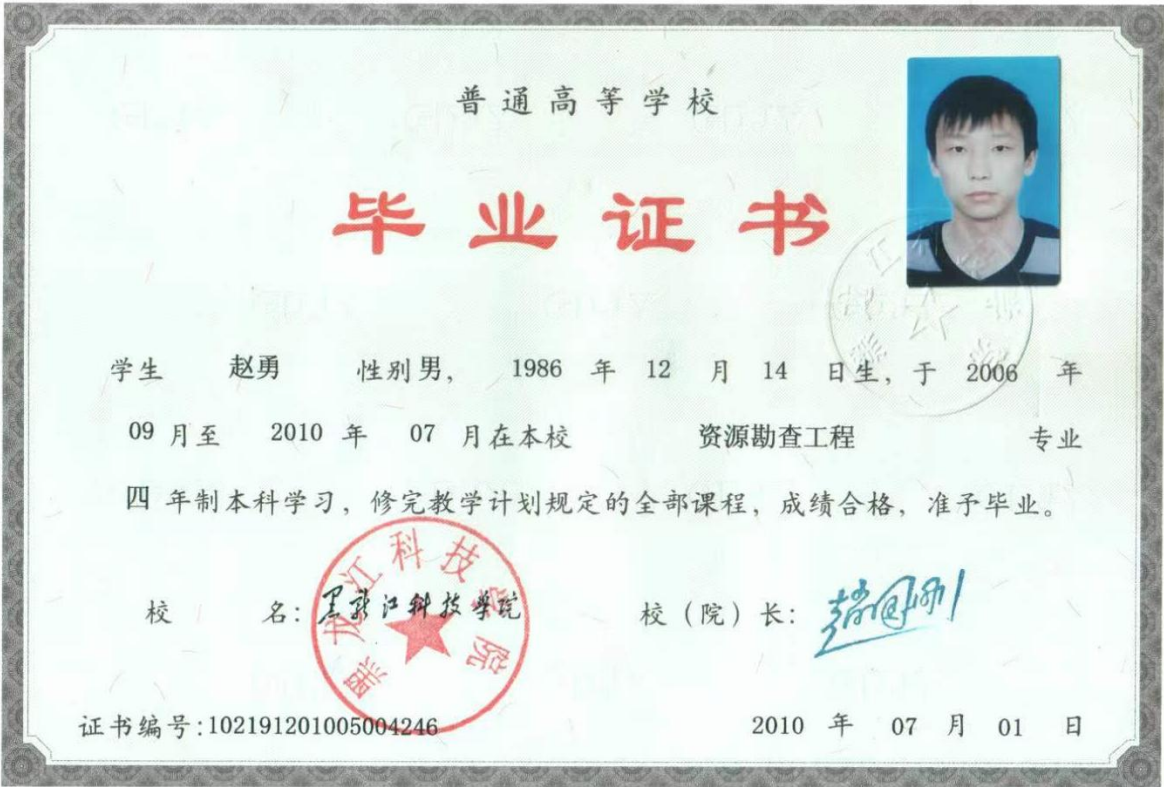 普通高等学校
毕业证书
学生 赵勇 性别 男, 1986 年 12 月 14 日生, 于 2006 年
09 月至 2010 年 07 月在本校 资源勘查工程 专业
四 年制本科学习, 修完教学计划规定的全部课程, 成绩合格, 准予毕业。
校 名: 黑龙江科技学院 校（院）长: 赵国刚
黑龙江科技学院
证书编号:102191201005004246 2010 年 07 月 01 日